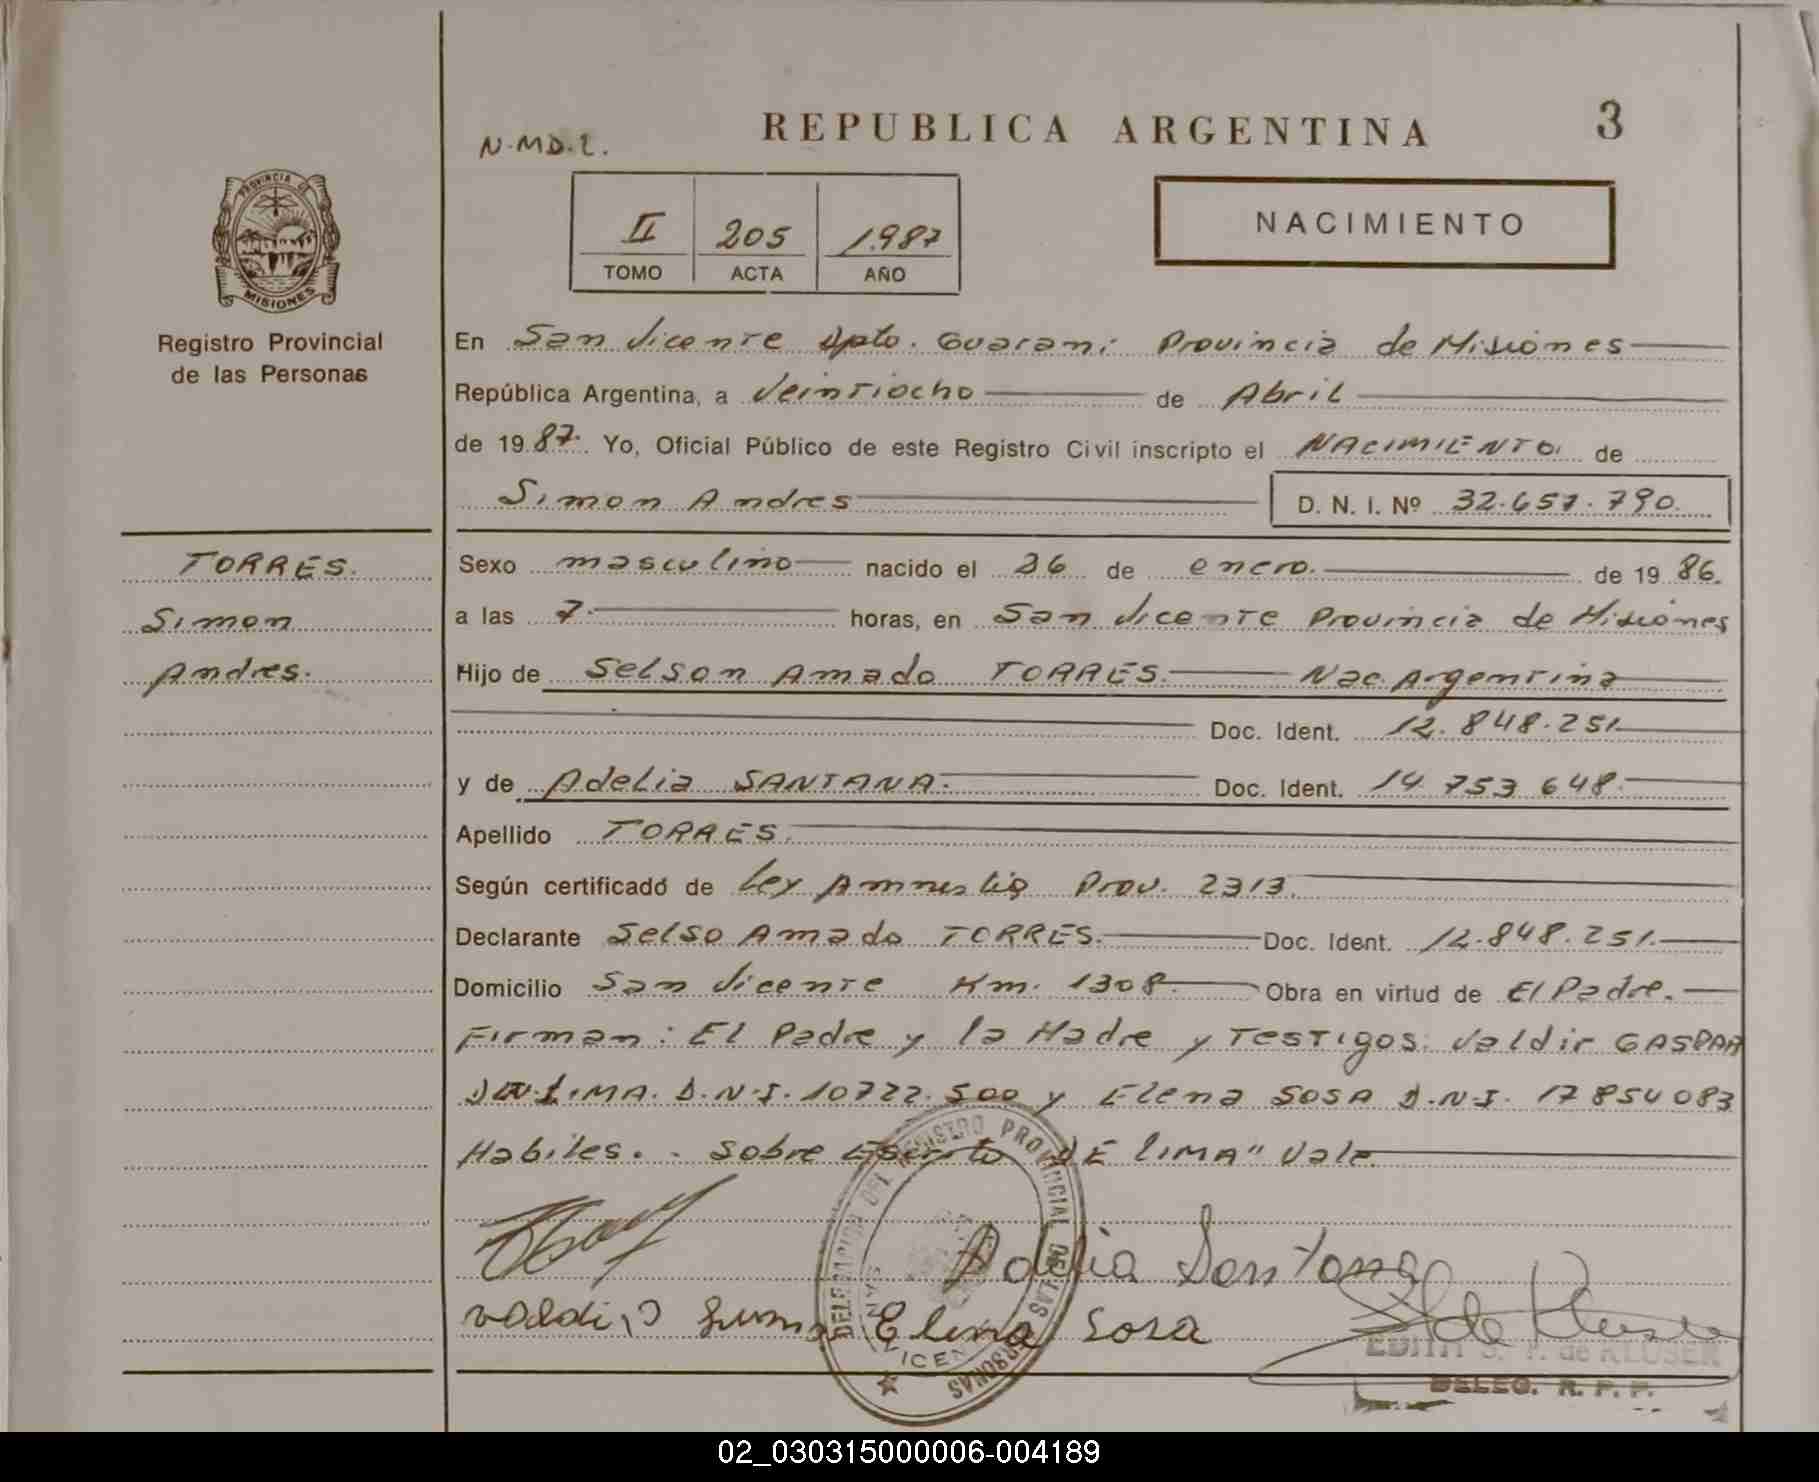 REPUBLICA ARGENTINA
3
N.MD.2.
PROVINCIA DE
MISIONES
Registro Provincial
de las Personas
II 205 1987
TOMO ACTA AÑO
NACIMIENTO
En San Vicente Dpto. Guarani Provincia de Misiones
República Argentina, a Veintiocho de Abril
de 1987. Yo, Oficial Público de este Registro Civil inscripto el NACIMIENTO de
Simon Andres D. N. I. Nº 32.657.790.
TORRES.
Simon
Andres.
Sexo masculino nacido el 26 de enero. de 1986.
a las 7. horas, en San Vicente Provincia de Misiones
Hijo de Selson Amado TORRES. Nac. Argentina
Doc. Ident. 12.848.251
y de Adelia SANTANA. Doc. Ident. 14 753 648.
Apellido TORRES.
Según certificado de Ley Amnistia Prov. 2313.
Declarante Selso Amado TORRES. Doc. Ident. 12.848.251.
Domicilio San Vicente Km. 1308. Obra en virtud de El Padre.
Firman: El Padre y la Madre y Testigos: Valdir GASPAR
LIMA. D.N.I. 10722.500 y Elena SOSA D.N.I. 17 854 083
Habiles. . Sobre Escrito DE LIMA" Vale
DELEGACION DEL REGISTRO PROVINCIAL DE LAS PERSONAS
SAN VICENTE
Adelia Santana
Elena Sosa
EDITH S. P. de KLUSER
DELEG. R. P. P.
02_030315000006-004189